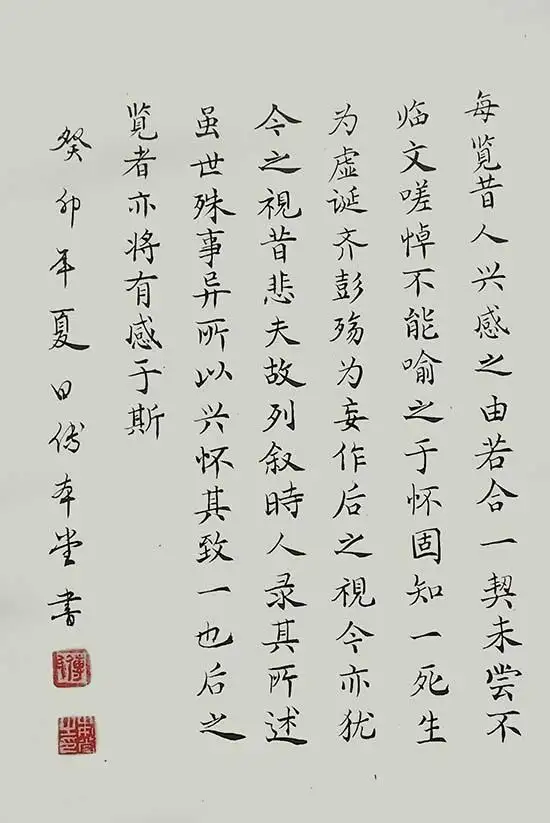 每览昔人兴感之由若合一契未尝不
临文嗟悼不能喻之于怀固知一死生
为虚诞齐彭殇为妄作后之視今亦犹
今之視昔悲夫故列叙時人录其所述
虽世殊事异所以兴怀其致一也后之
览者亦将有感于斯
癸卯年夏日傅本堂書